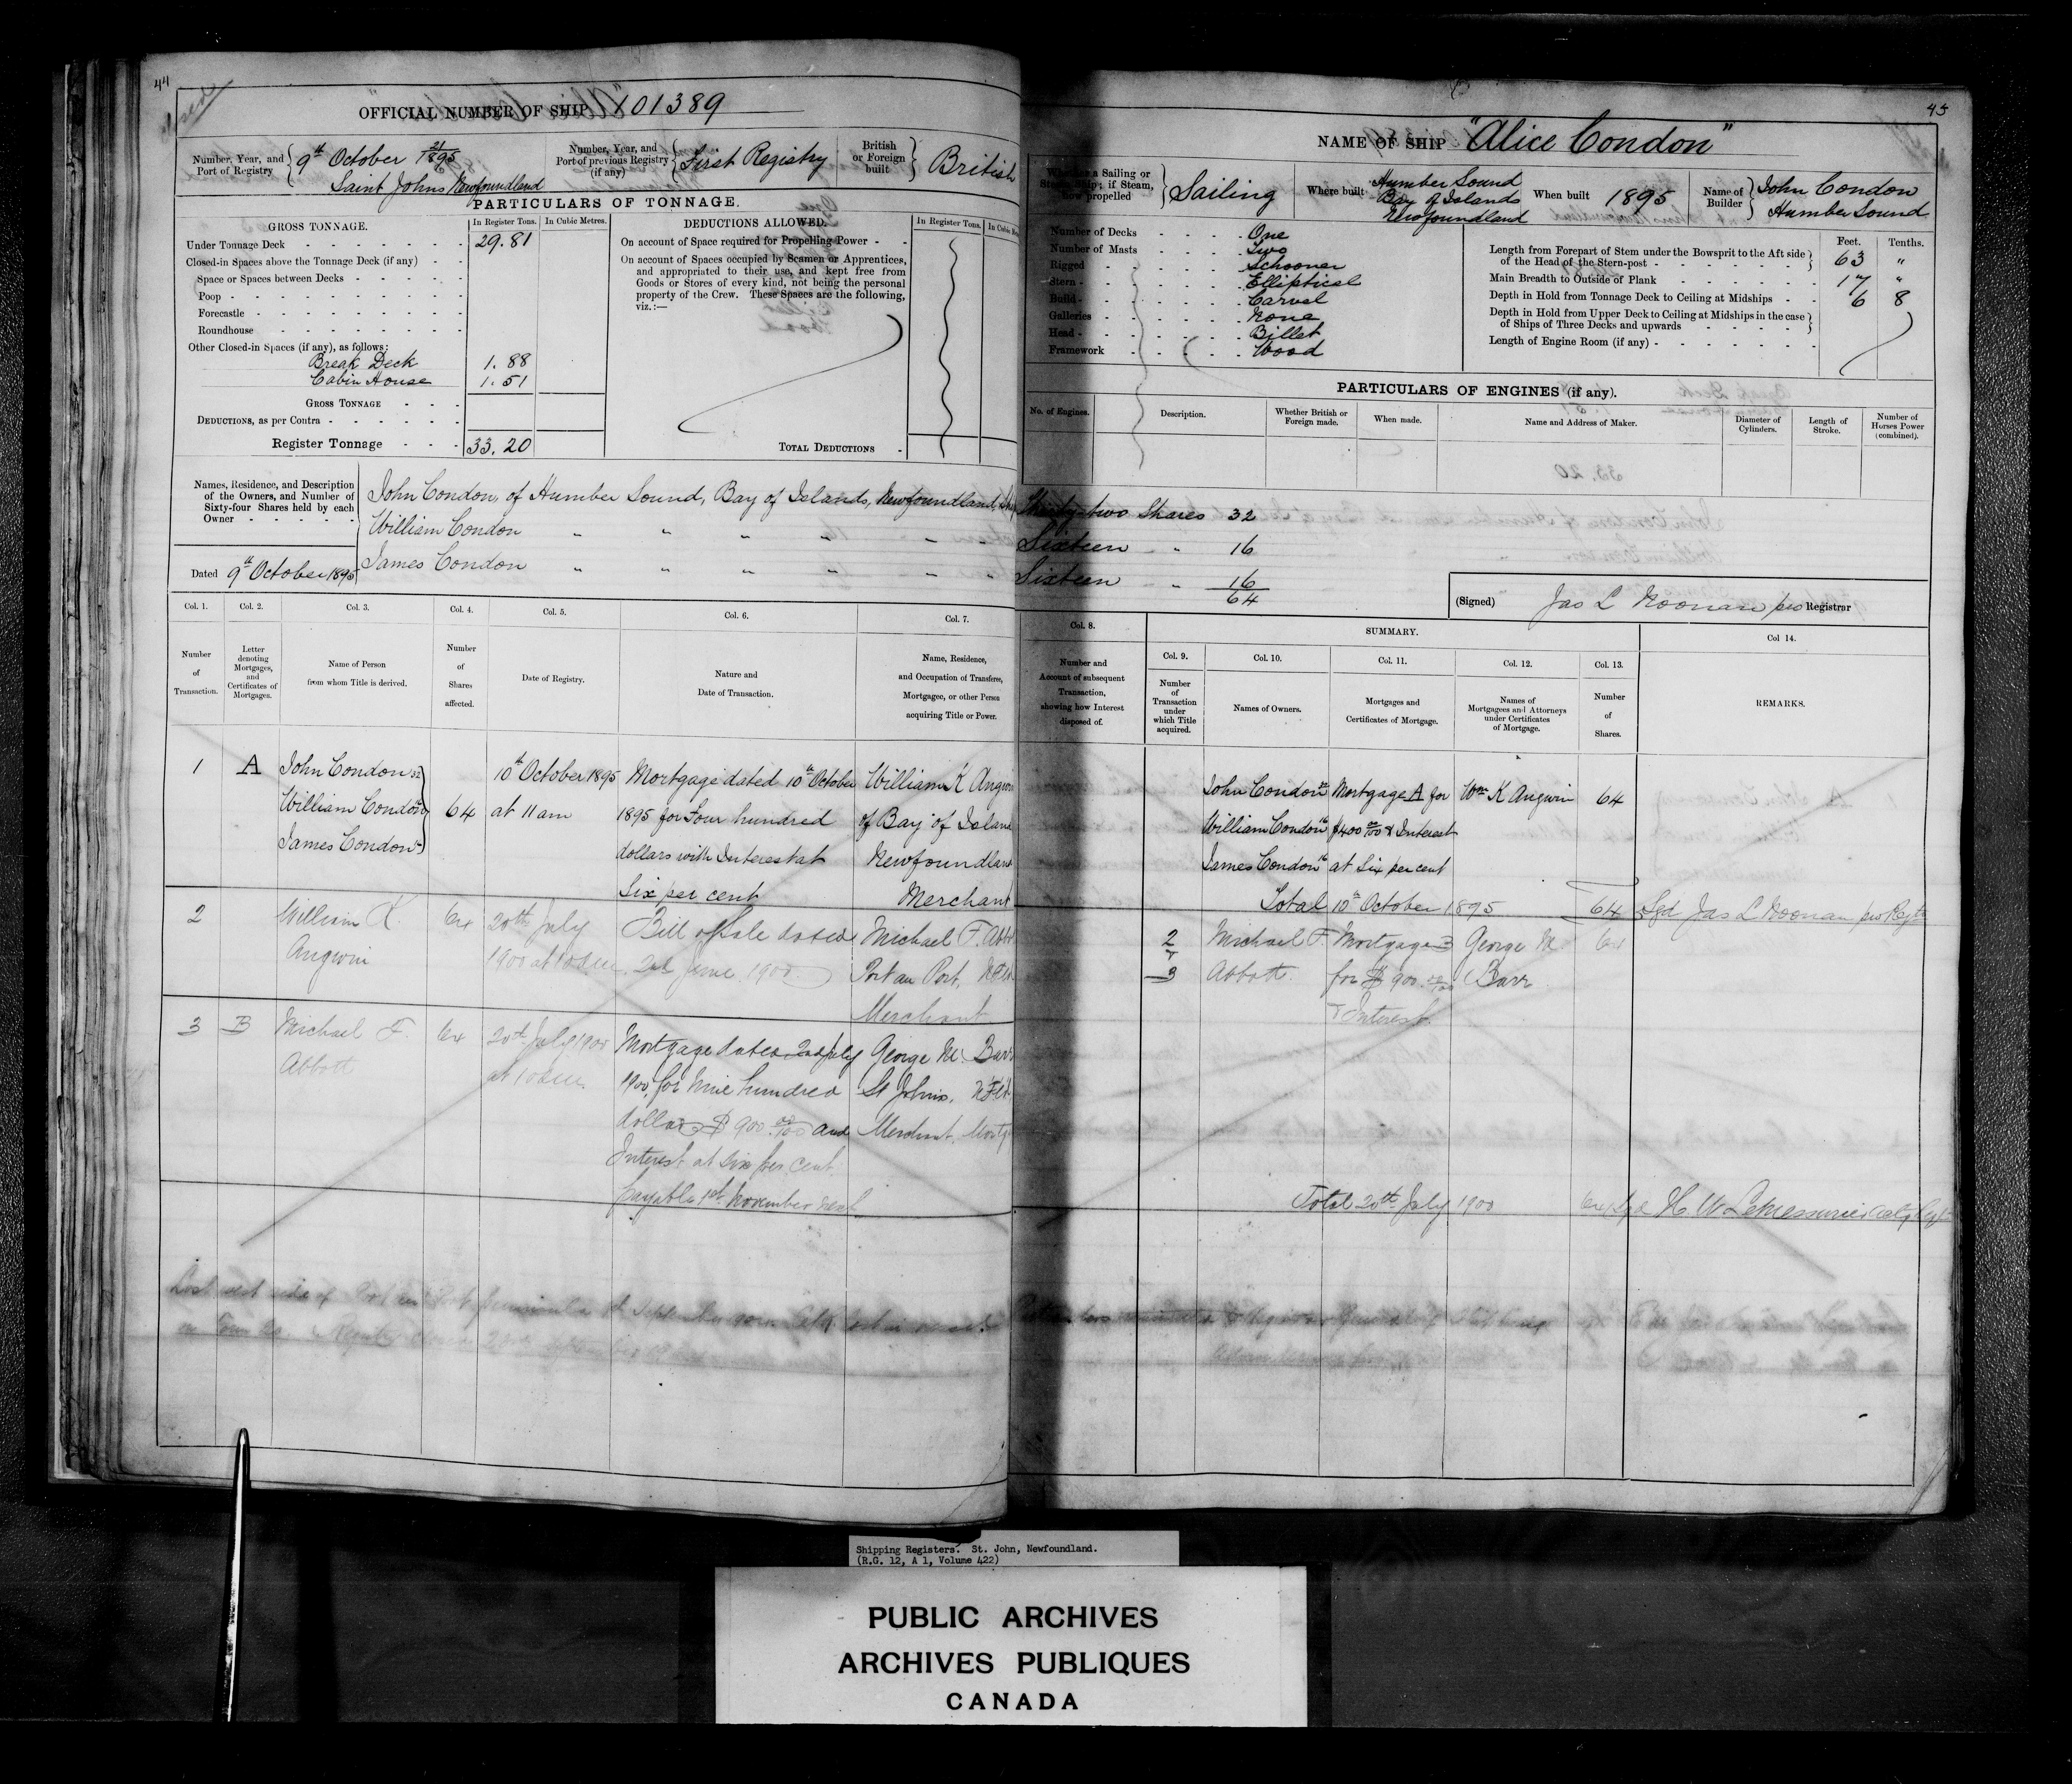 44
Closed
OFFICIAL NUMBER OF SHIP 101389
Number, Year, and Port of Registry
9th October 21/1895
Saint Johns Newfoundland
Number, Year, and Port of previous Registry (if any)
First Registry
British or Foreign built
British
PARTICULARS OF TONNAGE.
GROSS TONNAGE.
In Register Tons.
In Cubic Metres.
Under Tonnage Deck 29.81
Closed-in Spaces above the Tonnage Deck (if any)
Space or Spaces between Decks
Poop
Forecastle
Roundhouse
Other Closed-in Spaces (if any), as follows:
Break Deck 1.88
Cabin House 1.51
GROSS TONNAGE
DEDUCTIONS, as per Contra
Register Tonnage 33.20
DEDUCTIONS ALLOWED.
In Register Tons.
On account of Space required for Propelling Power
On account of Spaces occupied by Seamen or Apprentices,
and appropriated to their use, and kept free from
Goods or Stores of every kind, not being the personal
property of the Crew. These Spaces are the following,
viz.:—
TOTAL DEDUCTIONS
Names, Residence, and Description
of the Owners, and Number of
Sixty-four Shares held by each
Owner
John Condon, of Humber Sound, Bay of Islands, Newfoundland,
William Condon " " " " " "
James Condon " " " " " "
Dated 9th October 1895
Col. 1.
Number of Transaction.
Col. 2.
Letter denoting Mortgages, and Certificates of Mortgages.
Col. 3.
Name of Person from whom Title is derived.
Col. 4.
Number of Shares affected.
Col. 5.
Date of Registry.
Col. 6.
Nature and Date of Transaction.
Col. 7.
Name, Residence, and Occupation of Transferee, Mortgagee, or other Person acquiring Title or Power.
1
A
John Condon 32
William Condon 16
James Condon 16
64
10th October 1895
at 11 am
Mortgage dated 10th October
1895 for Four hundred
dollars with Interest at
Six per cent
William K Angwin
of Bay of Island
Newfoundland
Merchant
2
William K.
Angwin
64
20th July
1900 at 10 a.m.
Bill of Sale dated
2nd June 1900.
Michael F. Abbott
Port au Port, Nfld
Merchant
3
B
Michael F.
Abbott
64
20th July 1900
at 10 a.m.
Mortgage dated 2nd July
1900, for Nine hundred
dollars $900 00/100 and
Interest at Six per cent.
payable 1st November next
George M. Barr
St Johns, Nfld.
Merchant
Lost west side of Port au Port peninsula
45
NAME OF SHIP "Alice Condon"
Whether a Sailing or Steam Ship; if Steam, how propelled
Sailing
Where built
Humber Sound
Bay of Islands
Newfoundland
When built 1895
Name of Builder
John Condon
Humber Sound
Number of Decks One
Number of Masts Two
Rigged Schooner
Stern Elliptical
Build Carvel
Galleries None
Head Billet
Framework Wood
Feet. Tenths.
Length from Forepart of Stem under the Bowsprit to the Aft side
of the Head of the Stern-post 63 "
Main Breadth to Outside of Plank 17 "
Depth in Hold from Tonnage Deck to Ceiling at Midships 6 8
Depth in Hold from Upper Deck to Ceiling at Midships in the case
of Ships of Three Decks and upwards
Length of Engine Room (if any)
PARTICULARS OF ENGINES (if any).
No. of Engines.
Description.
Whether British or Foreign made.
When made.
Name and Address of Maker.
Diameter of Cylinders.
Length of Stroke.
Number of Horses Power (combined).
Thirty-two Shares 32
Sixteen " 16
Sixteen " 16
64
(Signed) Jas L Noonan pro Registrar
Col. 8.
Number and Account of subsequent Transaction, showing how Interest disposed of.
SUMMARY.
Col. 9.
Number of Transaction under which Title acquired.
Col. 10.
Names of Owners.
Col. 11.
Mortgages and Certificates of Mortgage.
Col. 12.
Names of Mortgagees and Attorneys under Certificates of Mortgage.
Col. 13.
Number of Shares.
Col 14.
REMARKS.
John Condon 32
William Condon 16
James Condon 16
Mortgage A for
$400 00/100 & Interest
at Six per cent
Wm K Angwin
64
Total 10th October 1895
64
Sgd Jas L Noonan pro Regtr
2
&
3
Michael F.
Abbott.
Mortgage B
for $900. 00/100
& Interest.
George M
Barr
64
Total 20th July 1900
64
Sgd H. W. LeMessurier
Shipping Registers. St. John, Newfoundland.
(R.G. 12, A 1, Volume 422)
PUBLIC ARCHIVES
ARCHIVES PUBLIQUES
CANADA